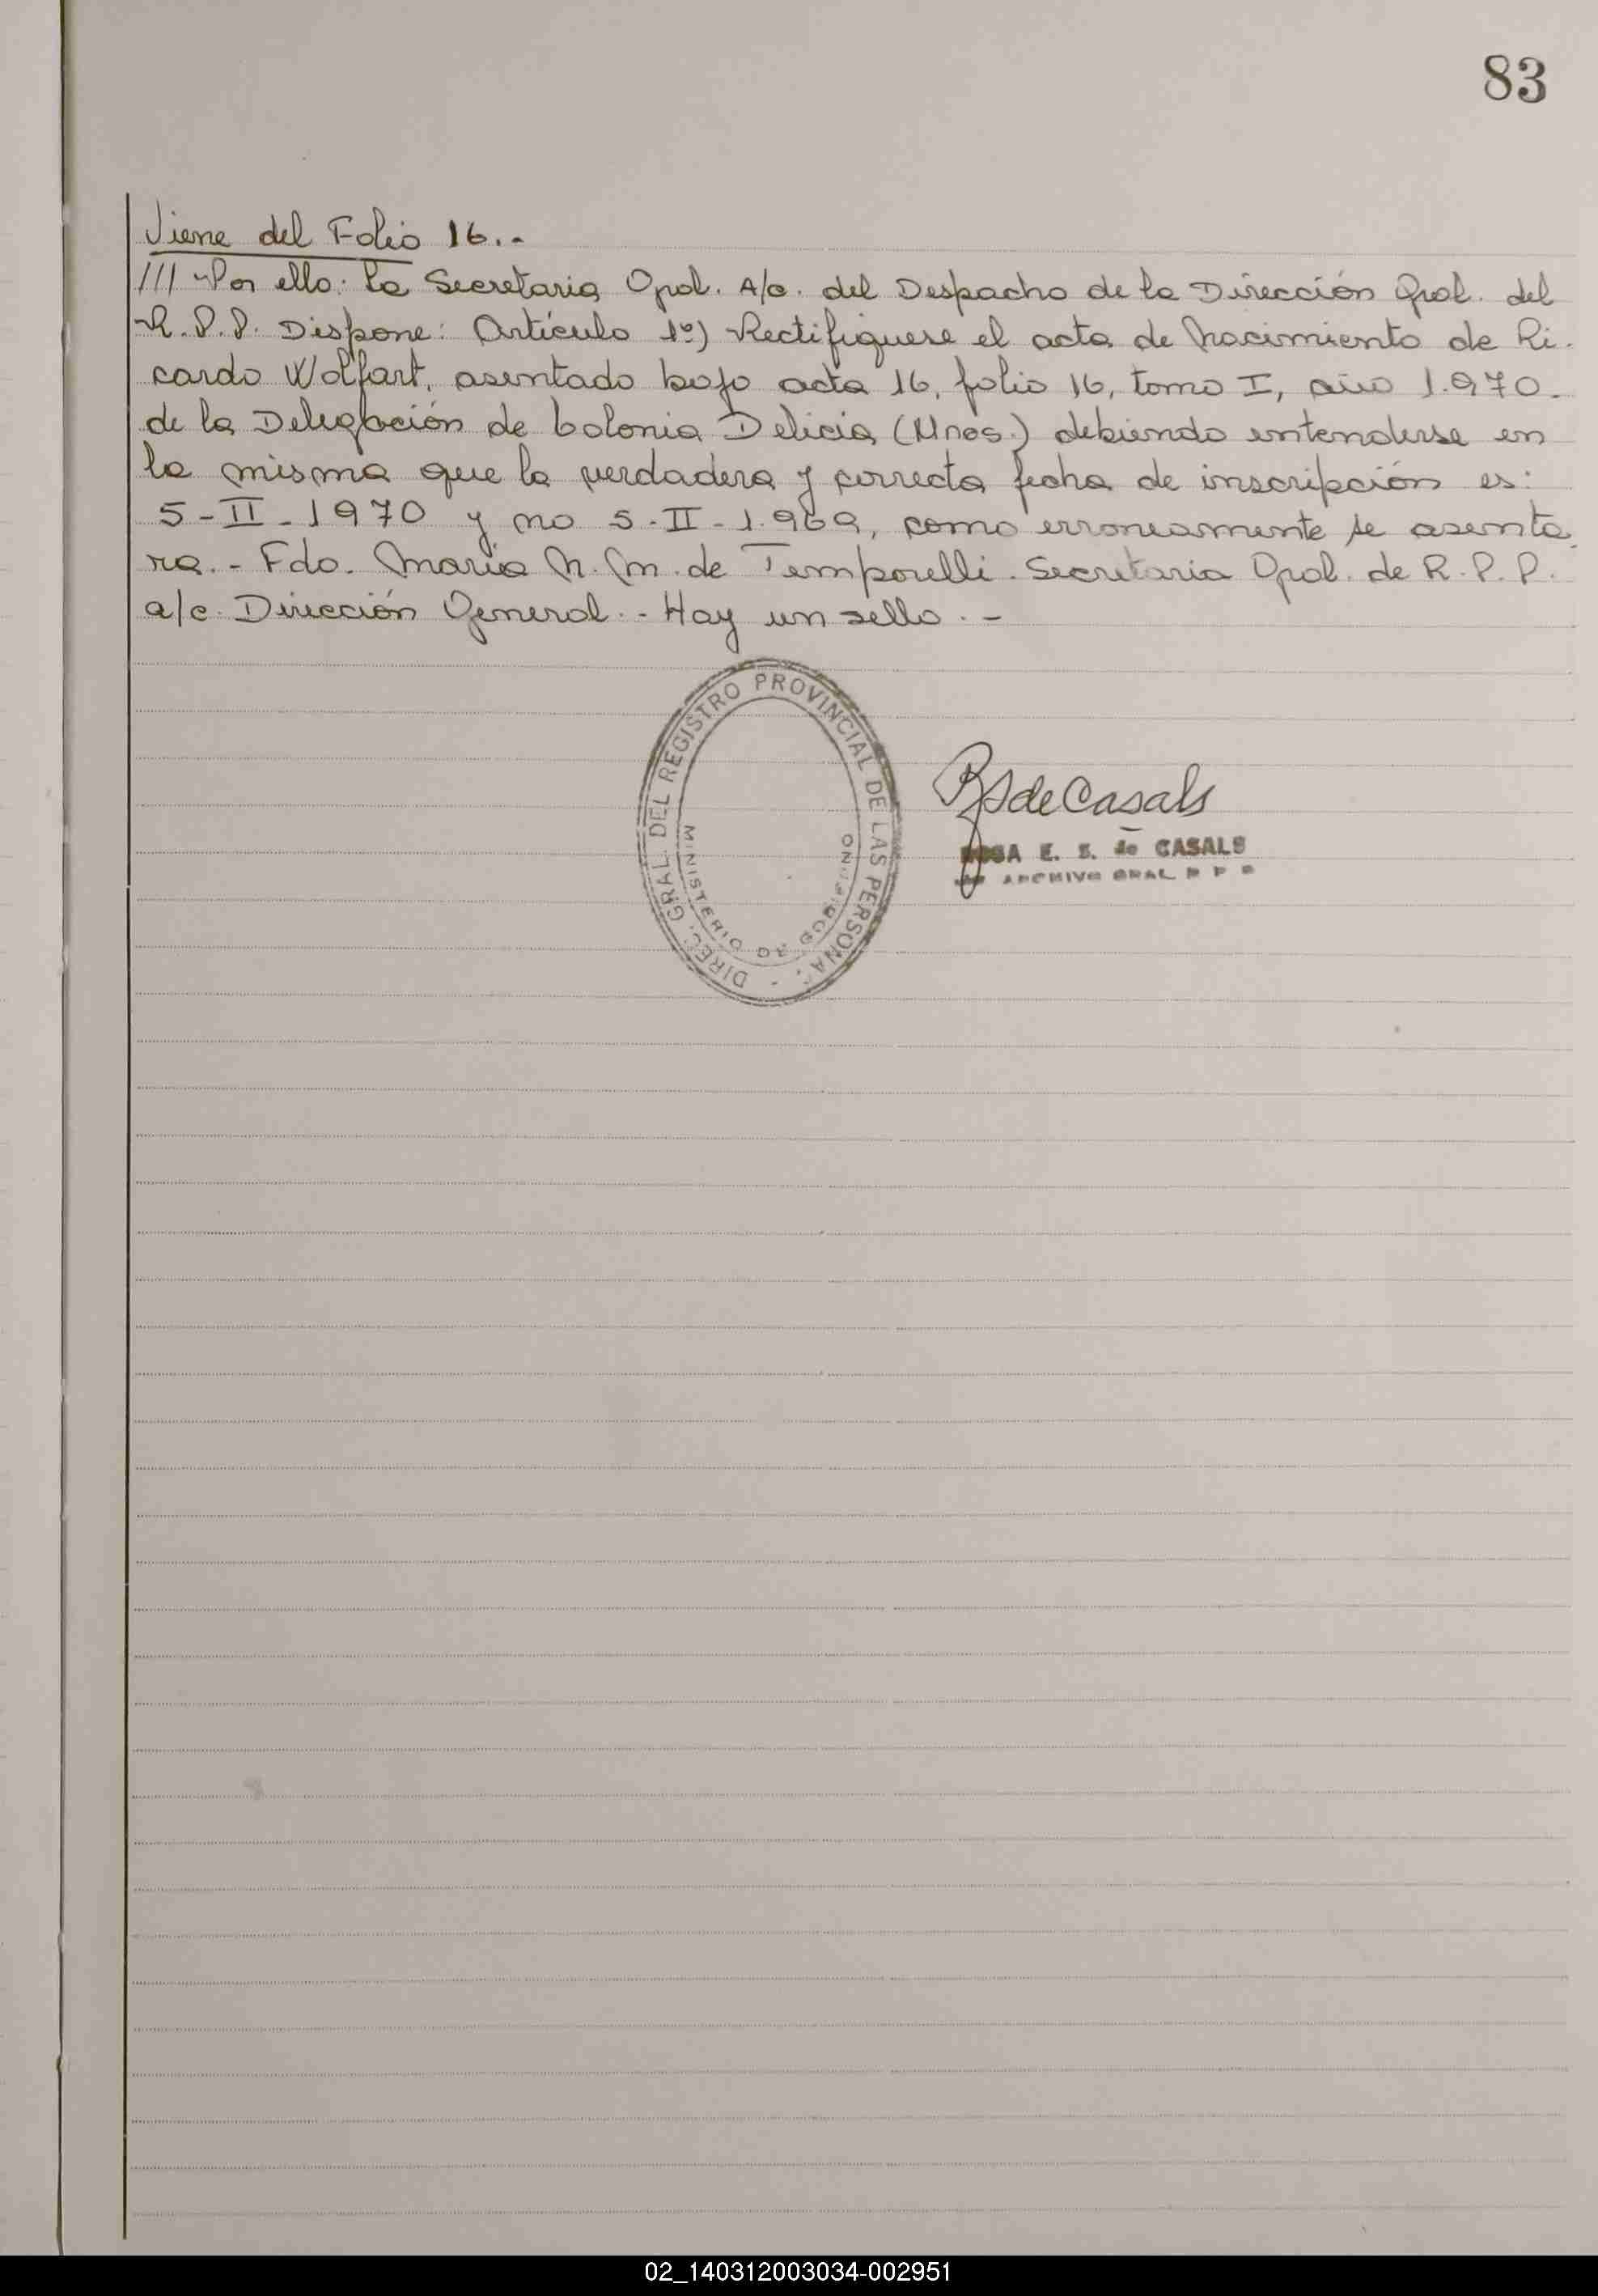 83
Viene del Folio 16..-
/// Por ello: La Secretaria Gral. A/c. del Despacho de la Dirección Gral. del
R.P.P. Dispone: Artículo 1º) Rectifíquese el acta de Nacimiento de Ri-
cardo Wolfart, asentado bajo acta 16, folio 16, tomo I, año 1.970.
de la Delegación de Colonia Delicia (Mnes.) debiendo entenderse en
la misma que la verdadera y correcta fecha de inscripción es:
5-II-1970 y no 5-II-1.969, como erroneamente se asenta
ra.- Fdo. María N. M. de Temporelli. Secretaria Gral. de R.P.P.
a/c. Dirección General.- Hay un sello.-
DIREC. GRAL. DEL REGISTRO PROVINCIAL DE LAS PERSONAS -
MINISTERIO DE GOBIERNO
RS de Casals
ROSA E. S. de CASALS
ARCHIVO GRAL R P P
02_140312003034-002951